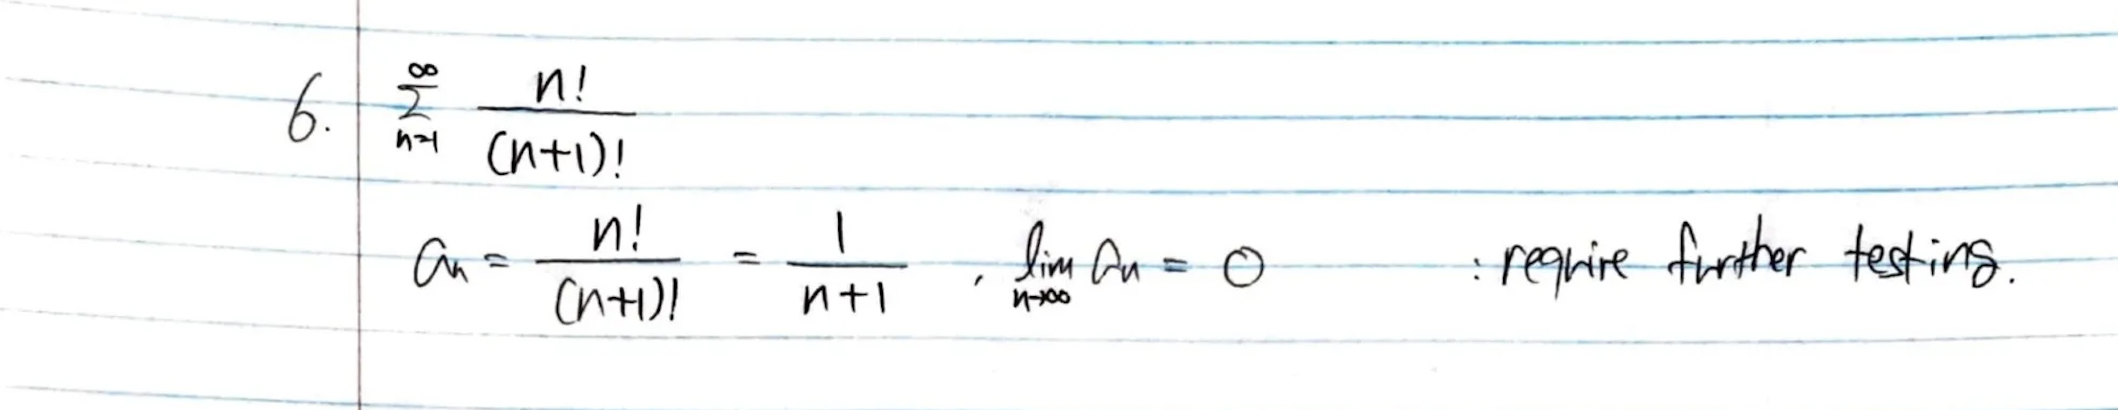 6. ∞ Σ n=1 n! / (n+1)!
an = n! / (n+1)! = 1 / n+1 , lim n→∞ an = 0 : require further testing.